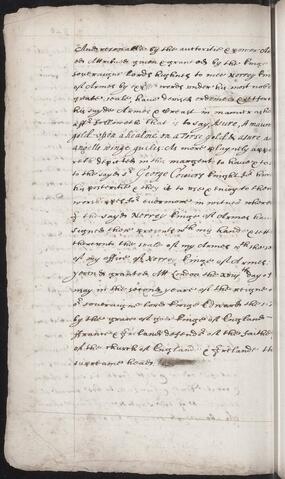 And resonable by the authoritie & power
and attributed given & graunted by the Kinge
soveraigne Lords highnes to mee Norrey Kinge
of Armes by expres words under his most noble
greate seale, have devised ordeined & sett forth
his sayde Armes & Creast in manner as here
after followeth That is to say, Azure, A maun
gold upon a healme on a Torse gold & azure an
angells winge gules As more playnly appe
reth depicted in the margent to have & to
to the sayde Sr George Conway Knight & to
his posteritie & they it to use & injoy to their
worshippes for evermore in witnes whereof
I the sayde Norrey Kinge of Armes have
signed these presents with my hand & sett
thereunto the seale of my Armes with the seale
of my office of Norrey Kinge of Armes
geven & granted At London the day of
May in the second yeare of the reigne of
or soveraigne lord Kinge Edwarde the
by the grace of god Kinge of England
ffrance & Irelande defendr of the faithe
of the church of England & Irelande the
supreame head